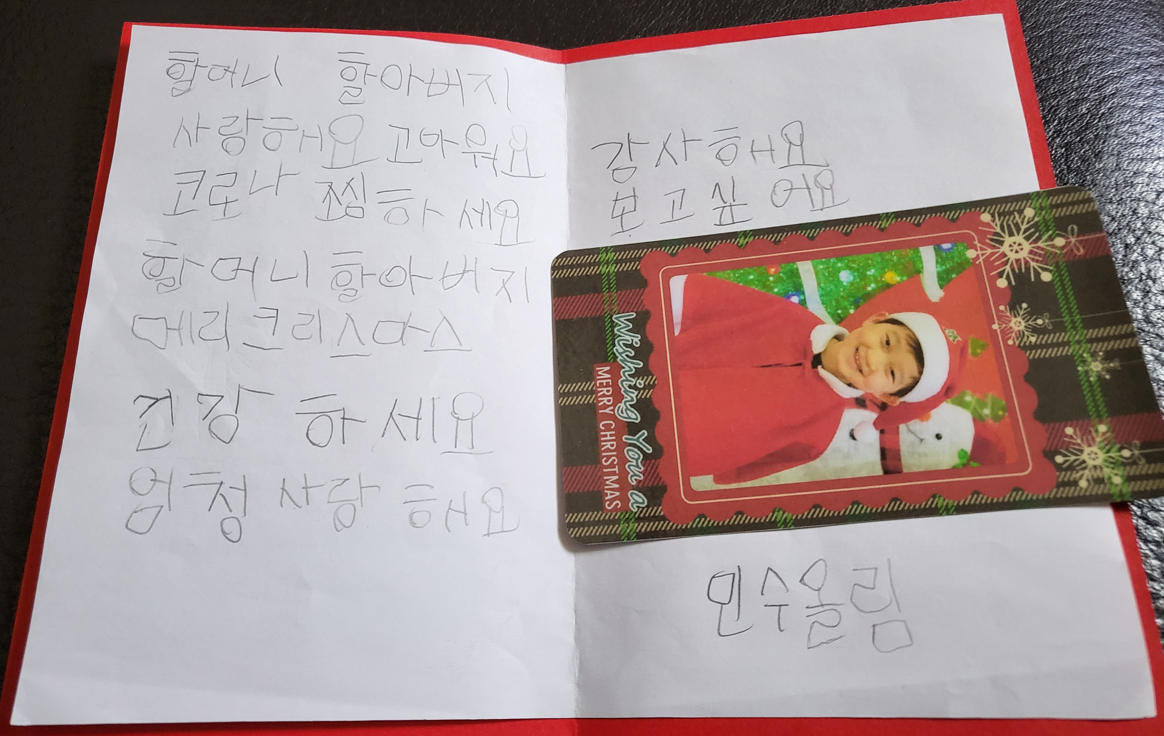 할머니 할아버지
사랑해요 고마워요
코로나 찜하세요
할머니 할아버지
메리크리스마스
건강하세요
엄청 사랑해요
감사해요
보고싶어요
Wishing You a
MERRY CHRISTMAS
민수올림